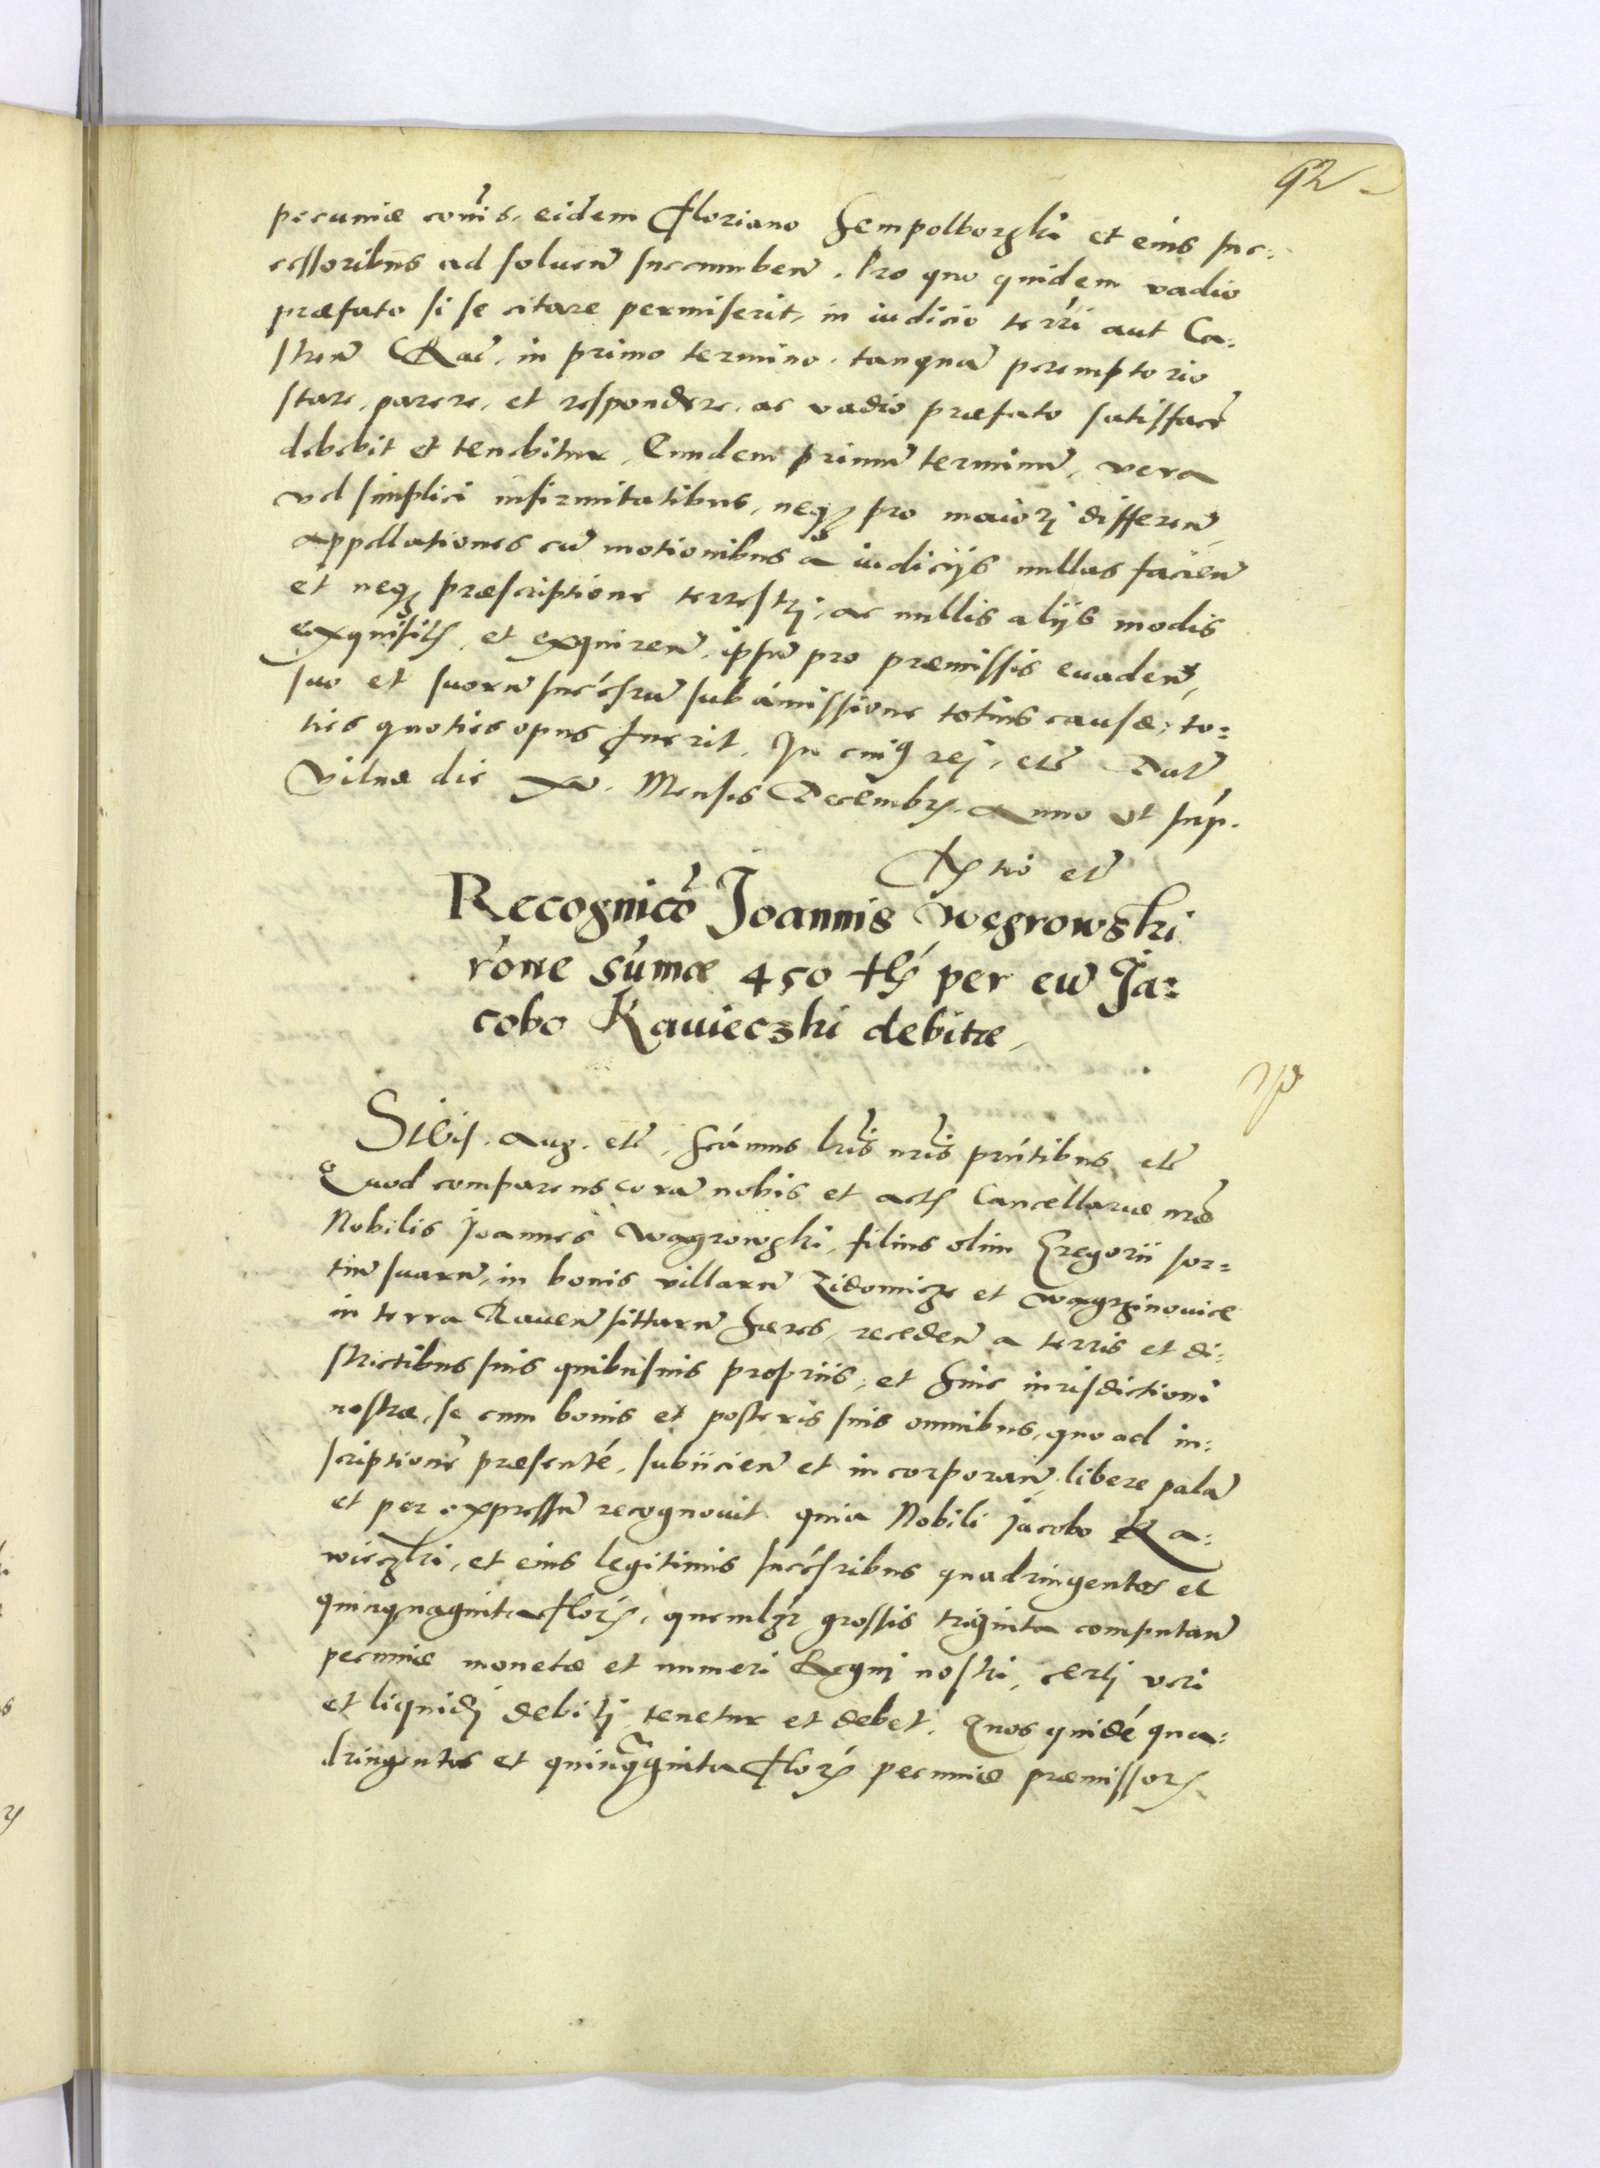 92
pecuniæ coñis, eidem Floriano Sempolborski et eius suc:
cessoribus ad soluen̄ succumben̄. Pro quo quidem vadio
præfato si se citare permiserit, in iudicio terri aut Ca:
stren̄ Raū, in primo termino, tanquā peremptorio
stare, parere, et respondere, ac vadio præfato satisfacē
debebit et tenebitur, Eundem primū terminū, vera
vel simplici infirmitatibus, neq₃ pro maiorj differen̄,
appellationes cū motionibus a iudicijs nullas facien̄
et neq₃ præscriptione terrestrj, ac nullis alijs modis
exquisitis, et exquiren̄, ipsū pro præmissis euaden̄,
suo et suorū succ̄sorū sub amissione totius causæ, to=
ties quoties opus fuerit. In cuiꝰ rej, etc̄ Dat̄
Vilnæ die xv. Mensis Decembrꝭ. Anno vt sup.
Recognic̄o Joannis Węgrowski
rōne sum̄æ 450 flꝭ per eū Ja:
cobo Rawieczki debitæ,
Sigis. Aug. etc̄, Scimus lr̄is nr̄is pñtibus, etc̄
Quod comparens corā nobis et actꝭ Cancellariæ nr̄æ
Nobilis Joannes Wagrowski, filius olim Gregorii sor=
tiū suarū, in bonis villarū Zidomicze et Wagrzinouice
in terra Rauen̄ sittarū hæres, receden̄ a terris et di:
strictibus suis quibusuis propriis, et huic iurisdictioni
nostræ, se cum bonis et posteris suis omnibus, quo ad in:
scriptionē præsenté, subiicien̄ et incorporan̄, libere palā
et per expressū recognouit quia Nobili Jacobo Ra:
wieczki, et eius legitimis succ̄soribus quadringentos et
quinquaginta florꝭ, quemlꝫ grossis triginta computan̄
pecuniæ monetæ et numeri Regnj nostri, certj veri
et liquidj debitj tenetur et debet. Quos quidé qua:
dringentos et quinq̄ginta florꝭ pecuniæ præmissorꝭ